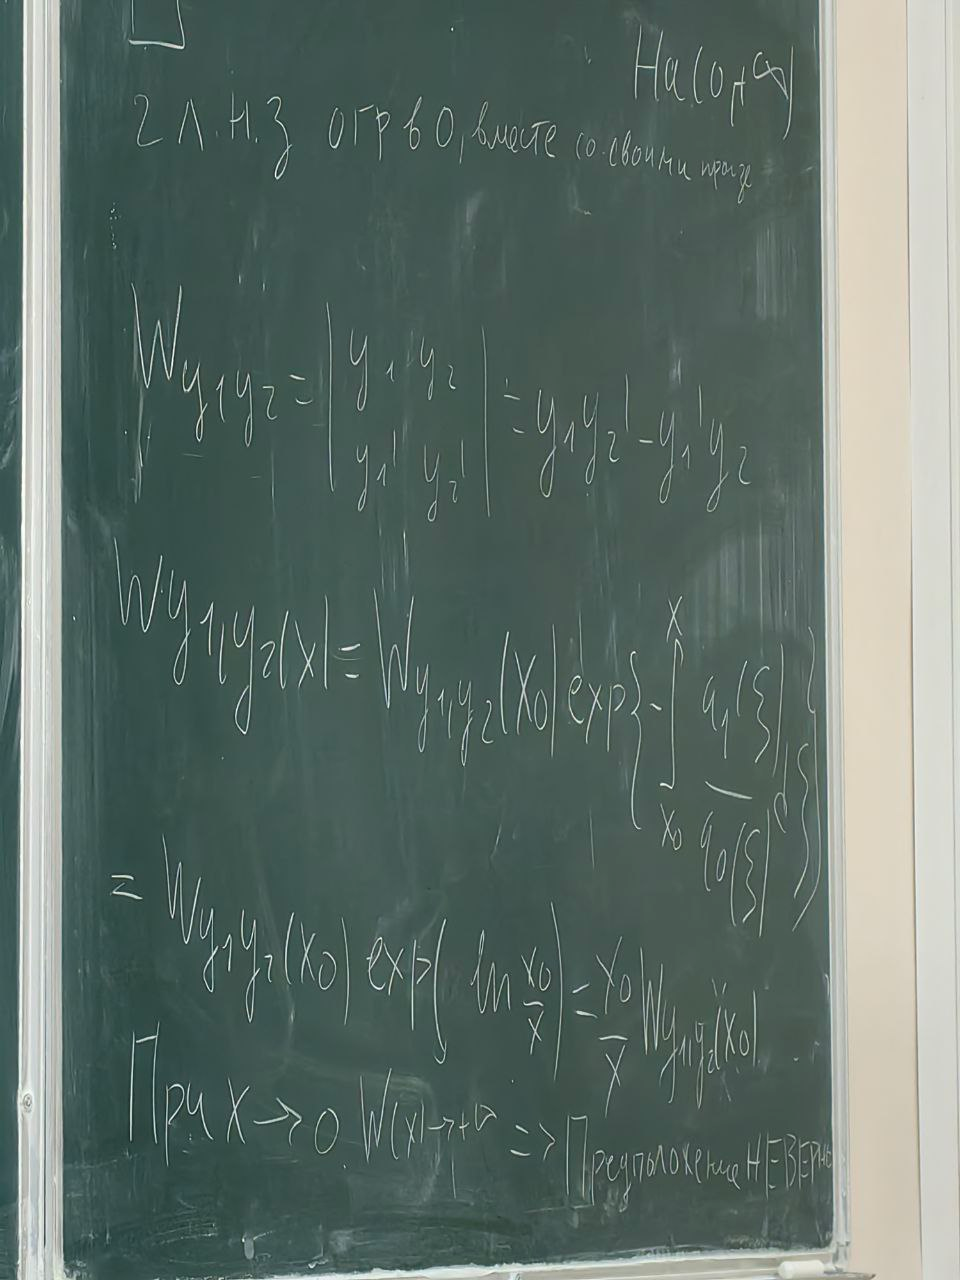 На (0,+∞)
2 л.н.з огр в 0, вместе со своими произв
W y₁y₂ = | y₁ y₂ | = y₁y₂' - y₁'y₂
| y₁' y₂' |
W y₁,y₂(x) = W y₁,y₂(x₀) exp{ - ∫ₓ₀ˣ q₁(ξ)/q₀(ξ) dξ }
= W y₁y₂(x₀) exp( ln x₀/x ) = x₀/x W y₁,y₂(x₀)
При x → 0 W(x) → +∞ => Предположение НЕВЕРНО